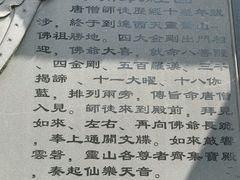 唐僧師徒歷
涉,終于到達西天靈山
佛祖勝地。四大金剛出門相
迎,佛爺大喜,就命八菩薩
、四金剛、五百羅漢、三千
揭諦、十一大曜、十八伽
藍,排列兩旁,傳旨命唐僧
入見。師徒來到殿前,拜見
如來、左右、再向佛爺長跪
,奉上通關文牒。如來敲響
雲磬,靈山各尊者齊集寶殿
,奏起仙樂天音。